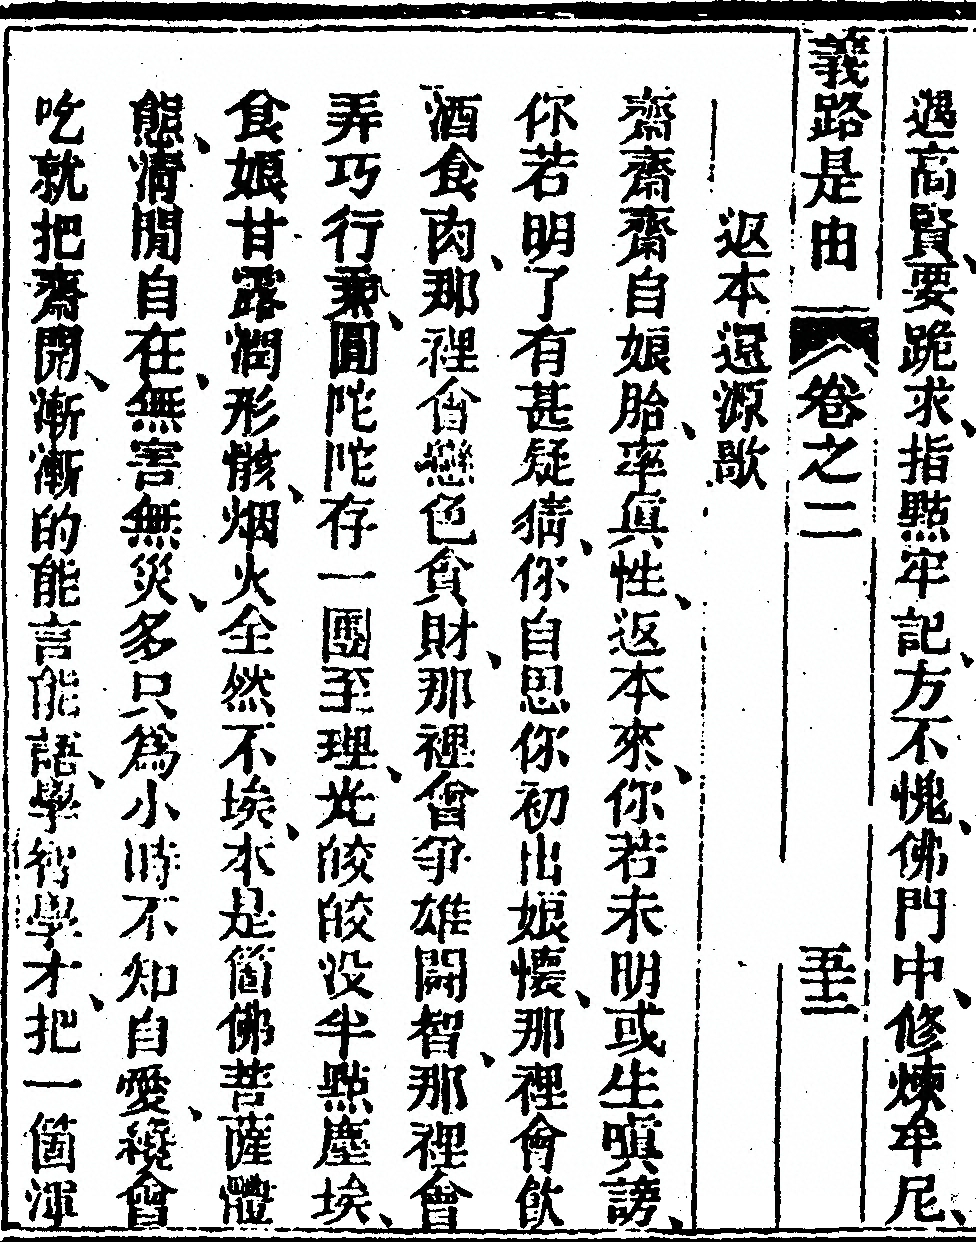 遇高賢、要跪求、指點牢記、方不愧、佛門中、修煉牟尼、
義路是由 卷之二 五十二
返本還源歌
齋齋齋自娘胎、率眞性、返本來、你若未明或生嗔謗、
你若明了有甚疑猜、你自思你初出娘懷、那裡會飲
酒食肉、那裡會戀色貪財、那裡會爭雄鬪智、那裡會
弄巧行乘、圓陀陀存一團至理、光皎皎没半點塵埃、
食娘甘露潤形骸、烟火全然不埃、本是箇佛菩薩體
態、淸閒自在、無害無災、多只爲小時不知自愛、纔會
吃就把齋開、漸漸的能言能語、學智學才、把一箇渾